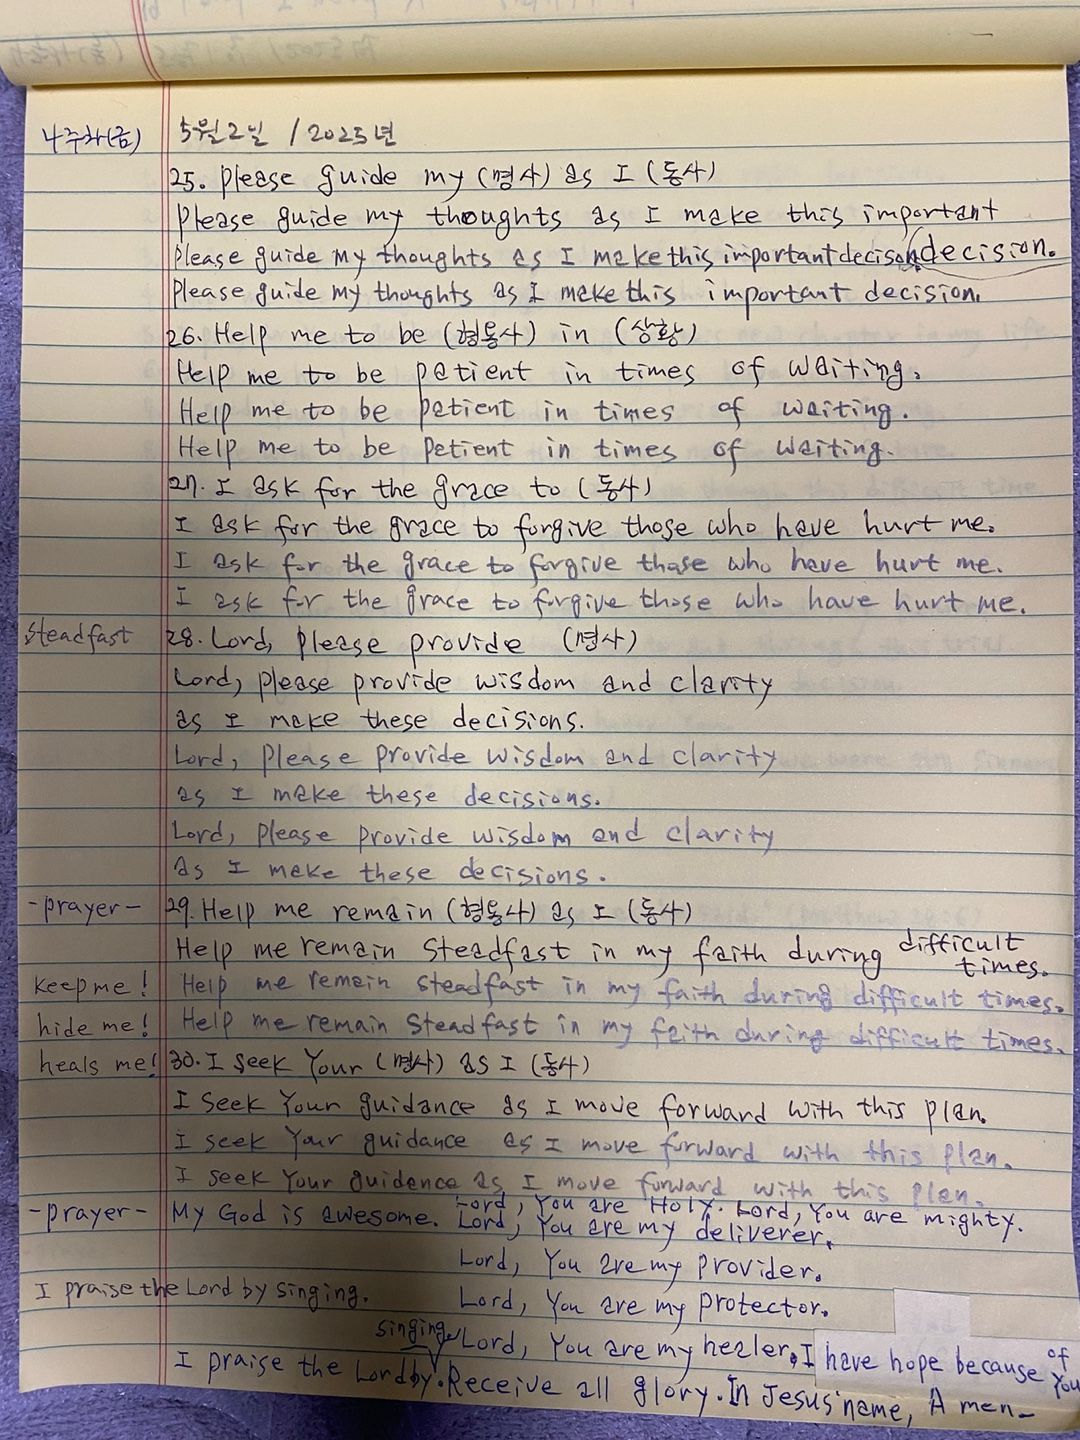 4주차(금) 5월2일 / 2025년
25. Please guide my (명사) as I (동사)
Please guide my thoughts as I make this important
Please guide my thoughts as I make this important decison decision.
Please guide my thoughts as I make this important decision.
26. Help me to be (형용사) in (상황)
Help me to be patient in times of waiting.
Help me to be patient in times of waiting.
Help me to be patient in times of waiting.
27. I ask for the grace to (동사)
I ask for the grace to forgive those who have hurt me.
I ask for the grace to forgive those who have hurt me.
I ask for the grace to forgive those who have hurt me.
steadfast 28. Lord, please provide (명사)
Lord, please provide wisdom and clarity
as I make these decisions.
Lord, please provide wisdom and clarity
as I make these decisions.
Lord, please provide wisdom and clarity
as I make these decisions.
-prayer- 29. Help me remain (형용사) as I (동사)
Help me remain steadfast in my faith during difficult times.
keep me! Help me remain steadfast in my faith during difficult times.
hide me! Help me remain steadfast in my faith during difficult times.
heals me! 30. I seek Your (명사) as I (동사)
I seek Your guidance as I move forward with this plan.
I seek Your guidance as I move forward with this plan.
I seek Your guidence as I move forward with this plan.
-prayer- My God is awesome. Lord, You are Holy. Lord, You are mighty.
Lord, You are my deliverer.
Lord, You are my provider.
I praise the Lord by singing. Lord, You are my protector.
singing Lord, You are my healer. I have hope because of You
I praise the Lord by. Receive all glory. In Jesus' name, A men-